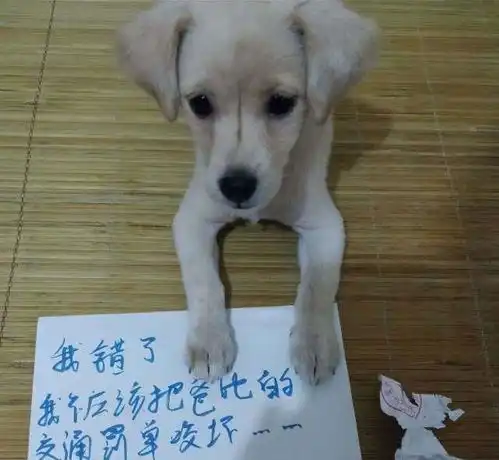 我错了
我不应该把爸比的
交通罚单咬坏……